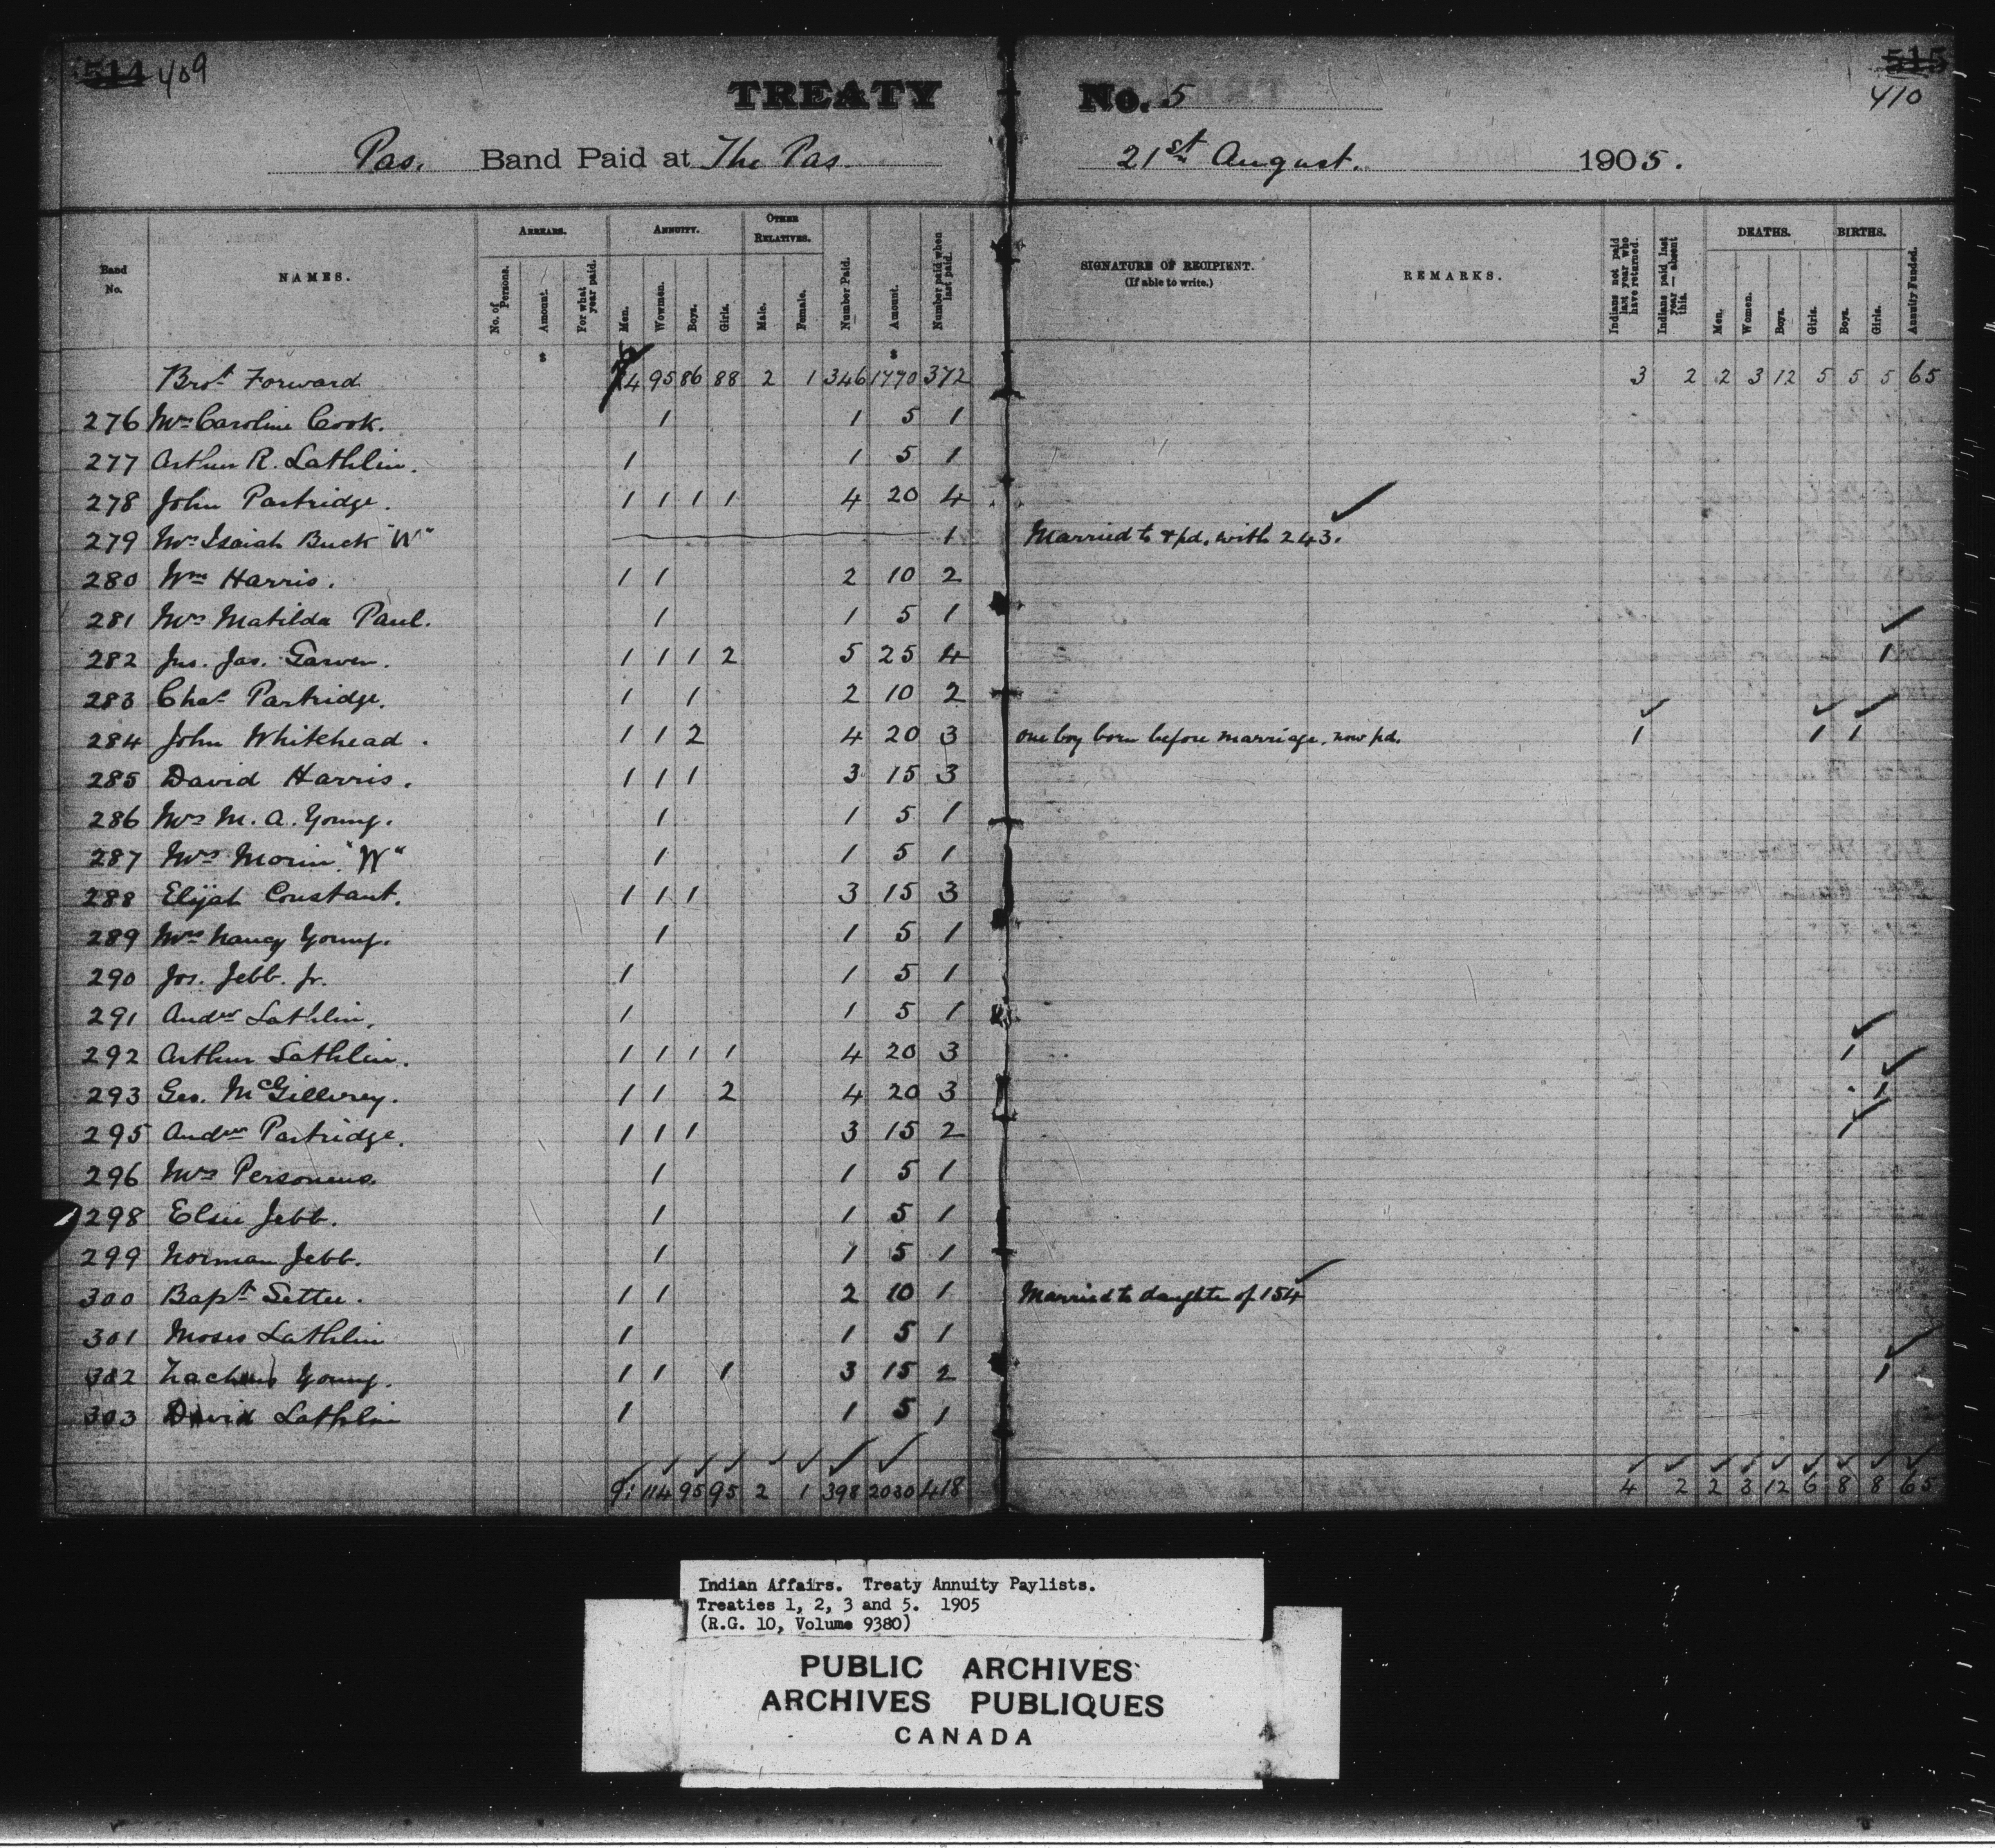 514 409
515
410
TREATY No. 5
Pas. Band Paid at The Pas. 21st August. 1905.
Band No. NAMES. ARREARS. No. of Persons. Amount. For what year paid. ANNUITY. Men. Women. Boys. Girls. OTHER RELATIVES. Male. Female. Number Paid. Amount. Number paid when last paid. SIGNATURE OF RECIPIENT. (If able to write.) REMARKS. Indians not paid last year who have returned. Indians paid last year — absent this. DEATHS. Men. Women. Boys. Girls. BIRTHS. Boys. Girls. Annuity Funded.
$ $
Brot Forward 4 95 86 88 2 1 346 1770 372 3 2 2 3 12 5 5 5 65
276 Mrs Caroline Cook. 1 1 5 1
277 Arthur R. Lathlin. 1 1 5 1
278 John Partridge. 1 1 1 1 4 20 4
279 Mrs Isaiah Buck "W" 1 Married to & pd. with 243.
280 Wm Harris. 1 1 2 10 2
281 Mrs Matilda Paul. 1 1 5 1
282 Jns. Jas. Garven. 1 1 1 2 5 25 4 1
283 Chas Partridge. 1 1 2 10 2
284 John Whitehead. 1 1 2 4 20 3 one boy born before marriage, now pd. 1 1 1
285 David Harris. 1 1 1 3 15 3
286 Mrs M. A. Young. 1 1 5 1
287 Mrs Morin "W" 1 1 5 1
288 Elijah Constant. 1 1 1 3 15 3
289 Mrs Nancy Young. 1 1 5 1
290 Jos. Jebb. Jr. 1 1 5 1
291 Andw Lathlin. 1 1 5 1
292 Arthur Lathlin. 1 1 1 1 4 20 3 1
293 Geo. McGillivrey. 1 1 2 4 20 3 1
295 Andw Partridge. 1 1 1 3 15 2 1
296 Mrs Personius. 1 1 5 1
298 Elsie Jebb. 1 1 5 1
299 Norman Jebb. 1 1 5 1
300 Bapt Settee. 1 1 2 10 1 Married to daughter of 154
301 Moses Lathlin 1 1 5 1
302 Zacheus Young. 1 1 1 3 15 2 1
303 David Lathlin 1 1 5 1
114 95 95 2 1 398 2030 418 4 2 2 3 12 6 8 8 65
Indian Affairs. Treaty Annuity Paylists.
Treaties 1, 2, 3 and 5. 1905
(R.G. 10, Volume 9380)
PUBLIC ARCHIVES
ARCHIVES PUBLIQUES
CANADA